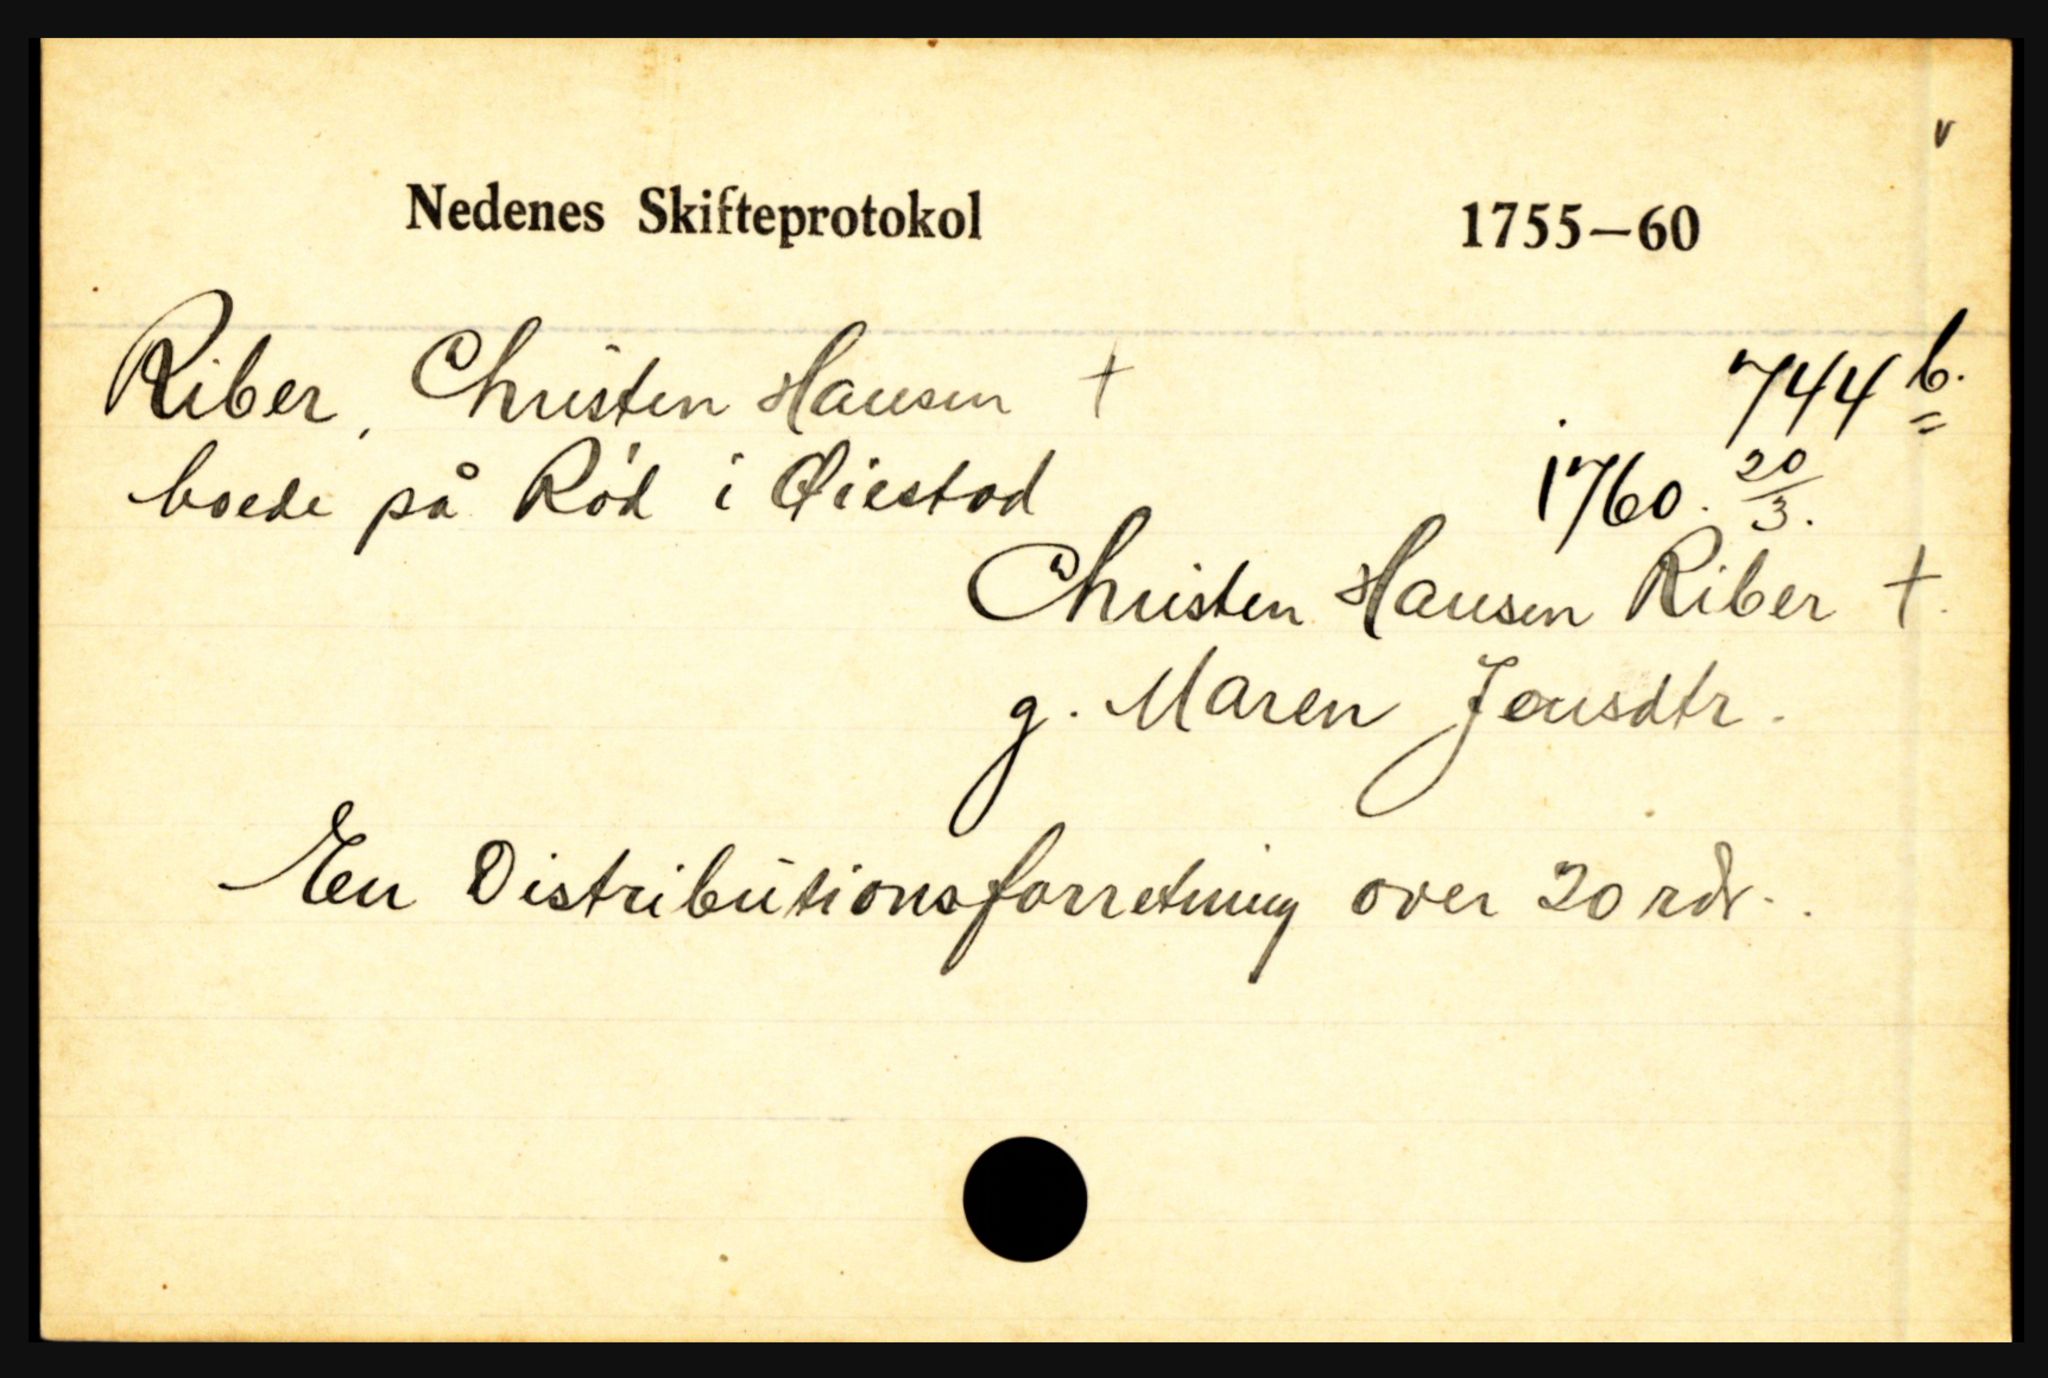 v
Nedenes Skifteprotokol 1755—60
Riber, Christen Hansen † 744 b.
boede på Röd i Øiestad 1760. 20/3.
Christen Hansen Riber †.
g. Maren Jensdtr.
En Distributionsforretning over 20 rdr.